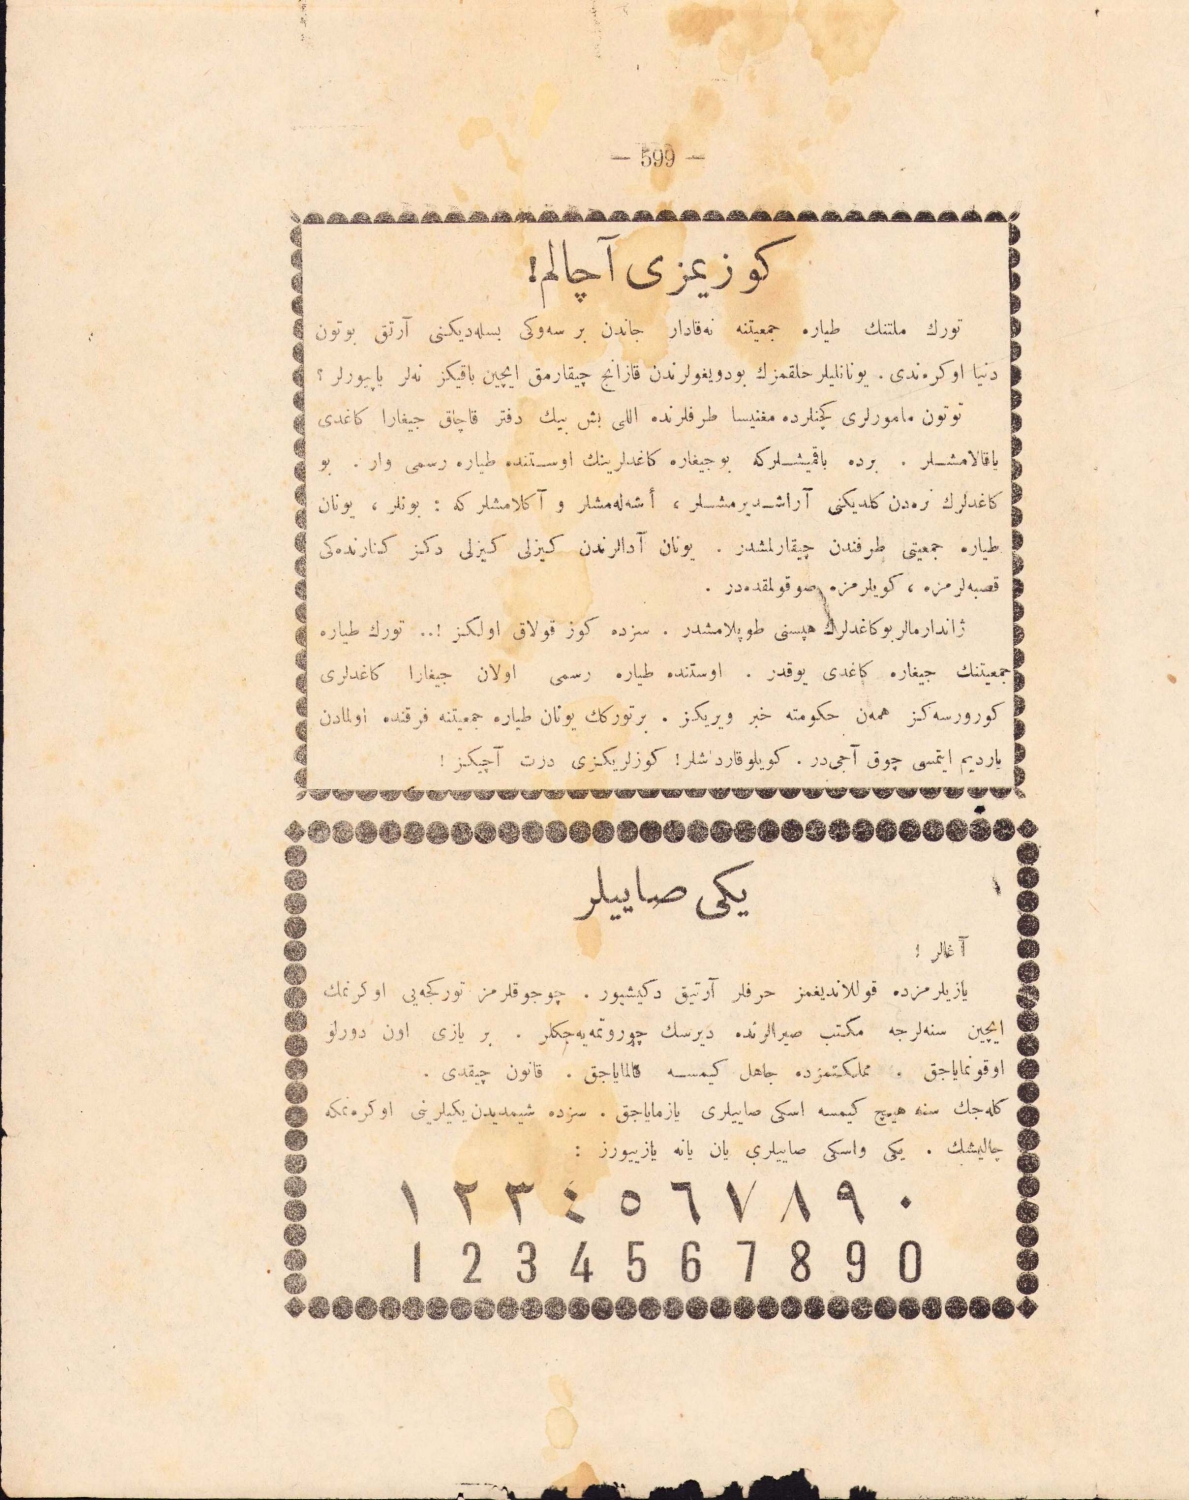 — 599 —
كوزيمزى آچالم!
تورك ملتنك طياره جمعيتنه نه‌قادار جاندن بر سه‌وكى بسله‌ديكنى آرتق بوتون
دنيا اوكره‌ندى . يونانليلر خلقمزك بودويغولرندن قازانج چيقارمق ايچين باقيكز نه‌لر ياپيورلر ؟
توتون مامورلرى كچنلرده مغنيسا طرفلرنده اللى بش بيك دفتر قاچاق جيغارا كاغدى
ياقالامشلر . برده باقميشلركه بو جيغاره كاغدلرينك اوستنده طياره رسمى وار . بو
كاغدلرك نره‌دن كلديكنى آراشديرمشلر ، أشه‌له‌مشلر و آكلامشلر كه : بونلر ، يونان
طياره جمعيتى طرفندن چيقارلمشدر . يونان آدالرندن كيزلى كيزلى دكز كنارنده‌كى
قصبه‌لرمزه ، كويلرمزه صوقولمقده‌در .
ژاندارمالر بوكاغدلرك هپسنى طوپلامشدر . سزده كوز قولاق اولكز !.. تورك طياره
جمعيتنك جيغاره كاغدى يوقدر . اوستنده طياره رسمى اولان جيغارا كاغدلرى
كورورسه‌كز همه‌ن حكومته خبر ويريكز . برتوركك يونان طياره جمعيتنه فرقنده اولمادن
يارديم ايتمسى چوق آجى‌در . كويلوقارداشلر! كوزلريكزى درت آچيكز !
يكى صاييلر
آغالر !
يازيلرمزده قوللانديغمز حرفلر آرتيق دكيشيور . چوجوقلرمز توركجه‌يى اوكرنمك
ايچين سنه‌لرجه مكتب صيرالرنده ديرسك چوروتمه‌يه‌جكلر . بر يازى اون دورلو
اوقونماياجق . مملكتمزده جاهل كيمسه قالماياجق . قانون چيقدى .
كله‌جك سنه هيچ كيمسه اسكى صاييلرى يازماياجق . سزده شيمديدن يكيلرينى اوكره‌نمكه
چاليشك . يكى واسكى صاييلرى يان يانه يازييورز :
١ ٢ ٣ ٤ ٥ ٦ ٧ ٨ ٩ ٠
1 2 3 4 5 6 7 8 9 0